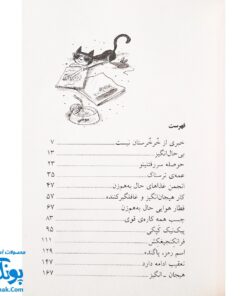 فهرست
خبری از خُرخُرستان نیست ۷
بی‌حال‌انگیز ۱۳
حوصله سررفتینو ۲۳
عمه‌ی ترسناک ۳۵
انجمن غذاهای حال به‌هم‌زن ۴۷
کار هیجان‌انگیز و غافلگیرکننده ۵۷
قطار هوایی حال به‌هم‌زن ۶۷
چسب همه کاره‌ی قوی ۸۳
پیک‌نیک کپکی ۹۵
فرانکنجیغکش ۱۱۱
اسم رمز، پاگنده ۱۲۹
تعقیب ادامه دارد ۱۴۷
هیجان ـ انگیز ۱۶۷
محصولات